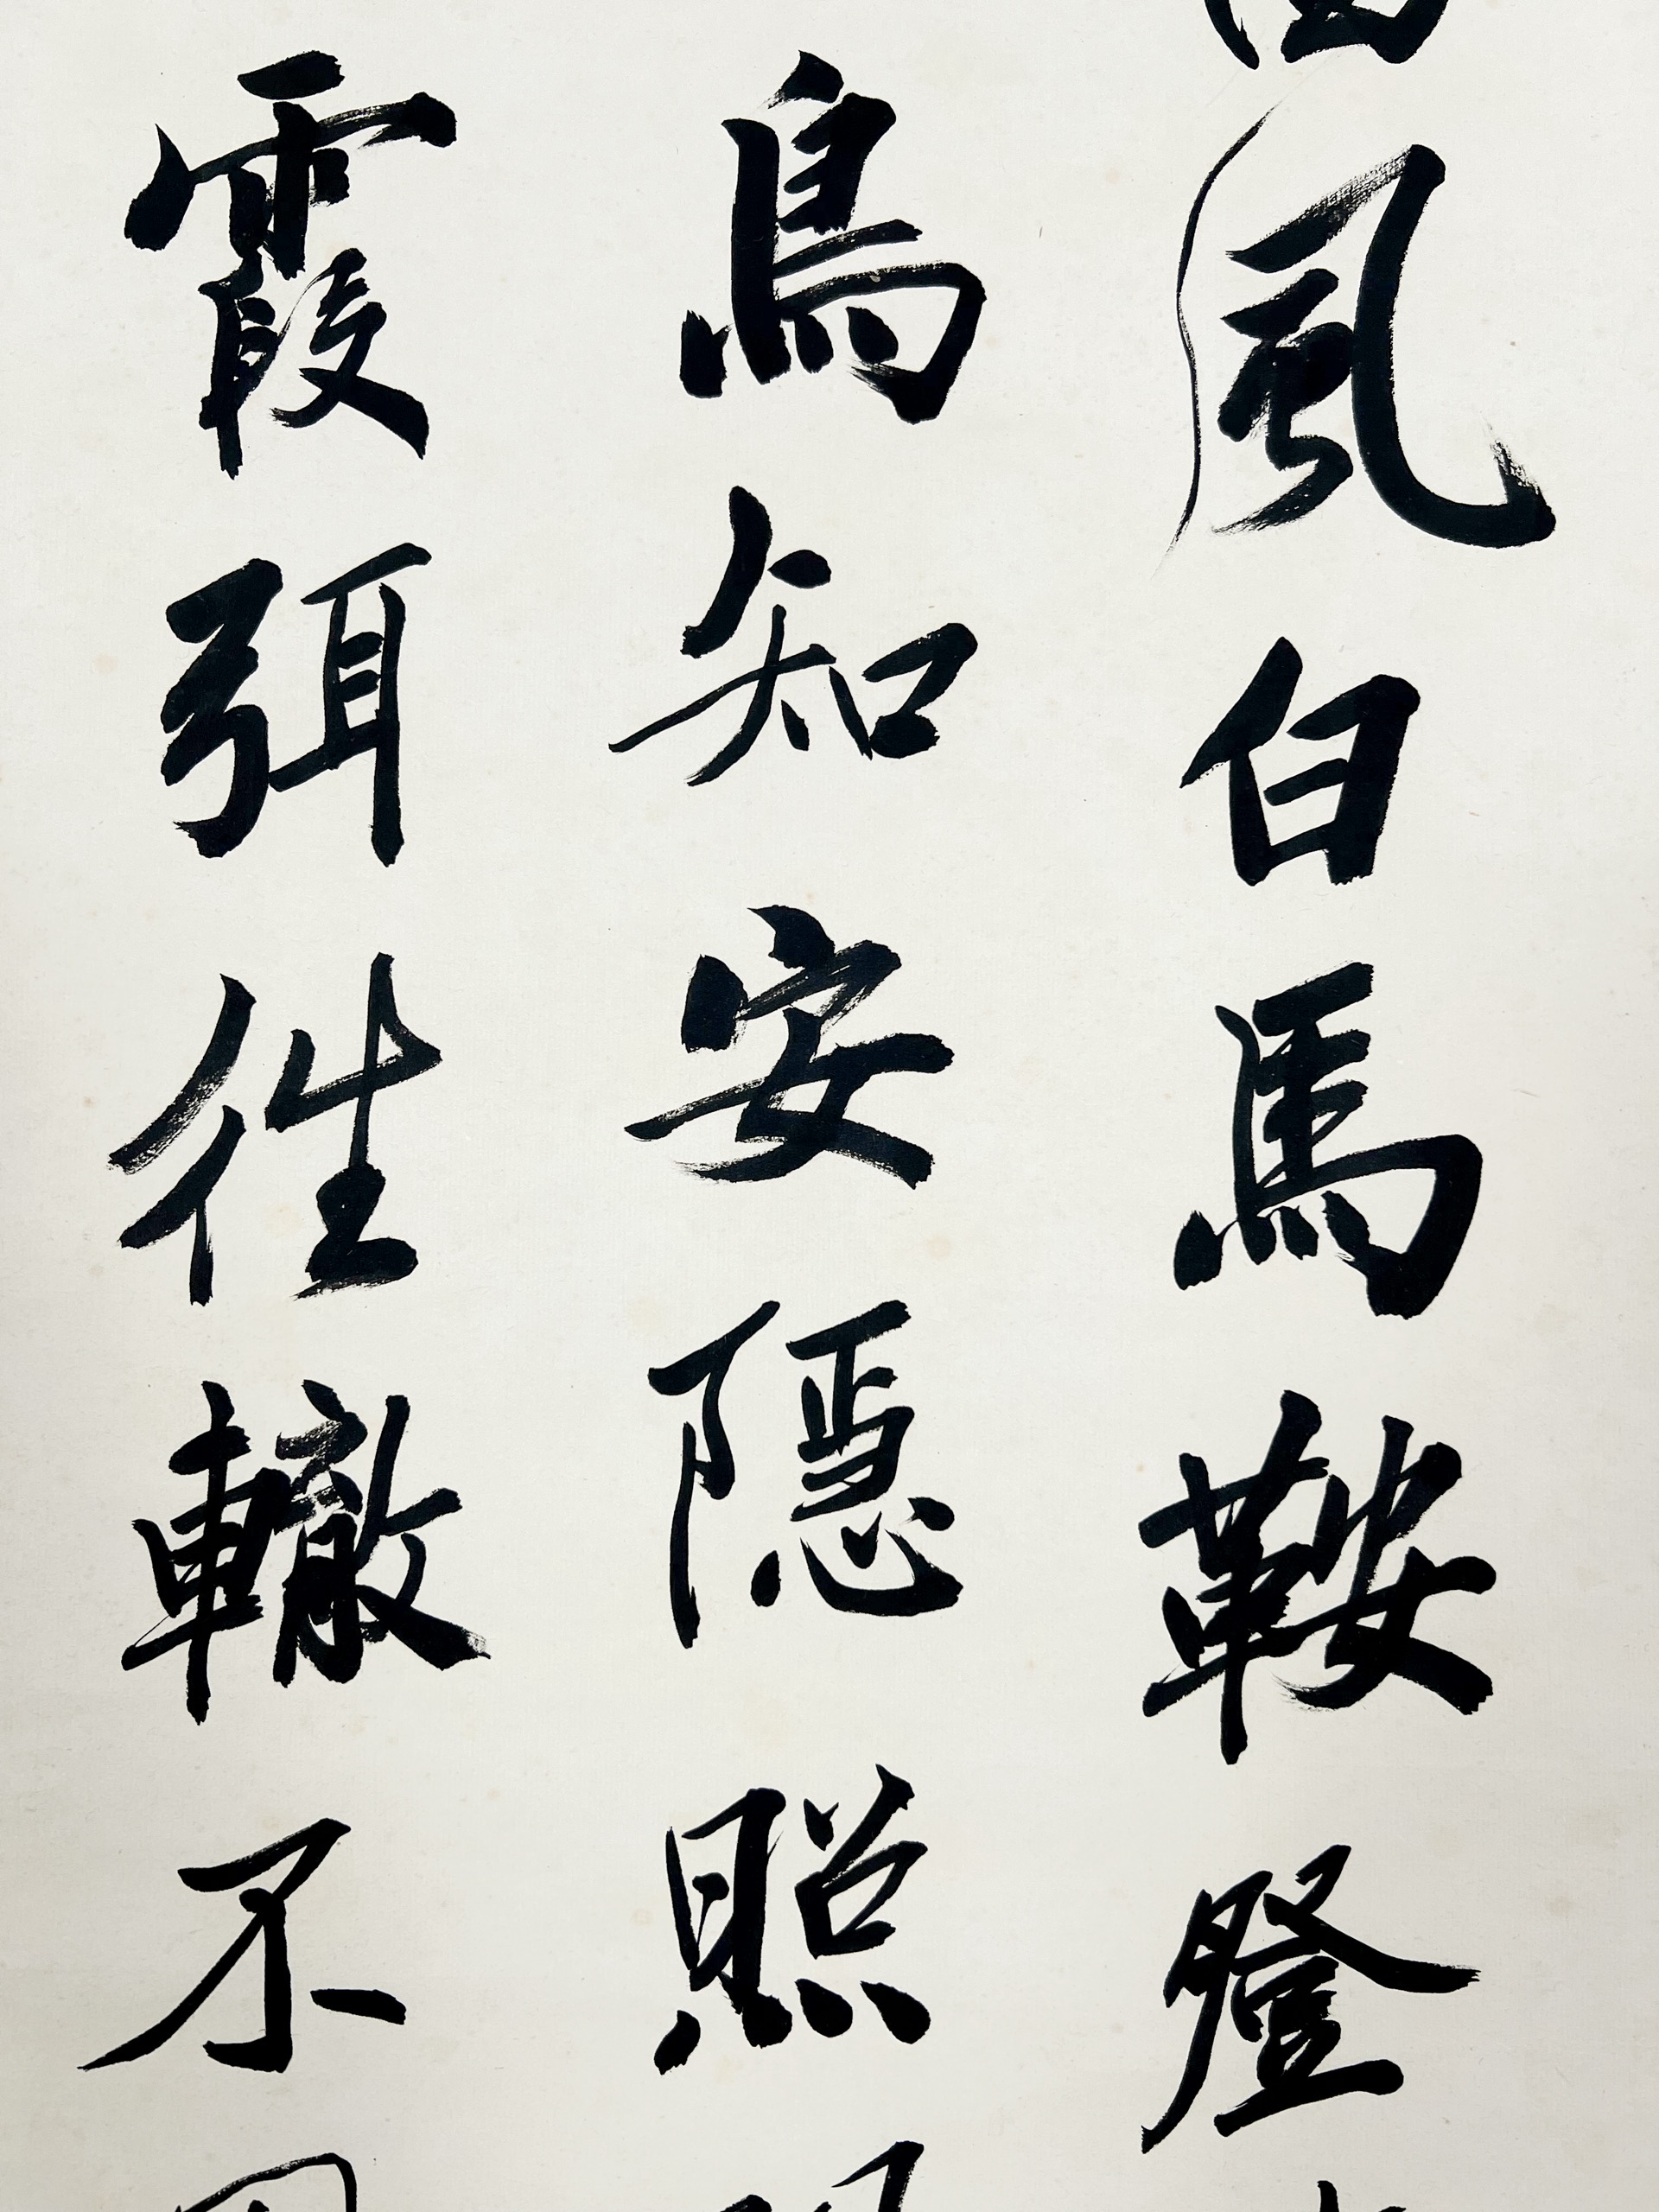 風白馬鞍登
鳥知安隱照
霞弭往轍不